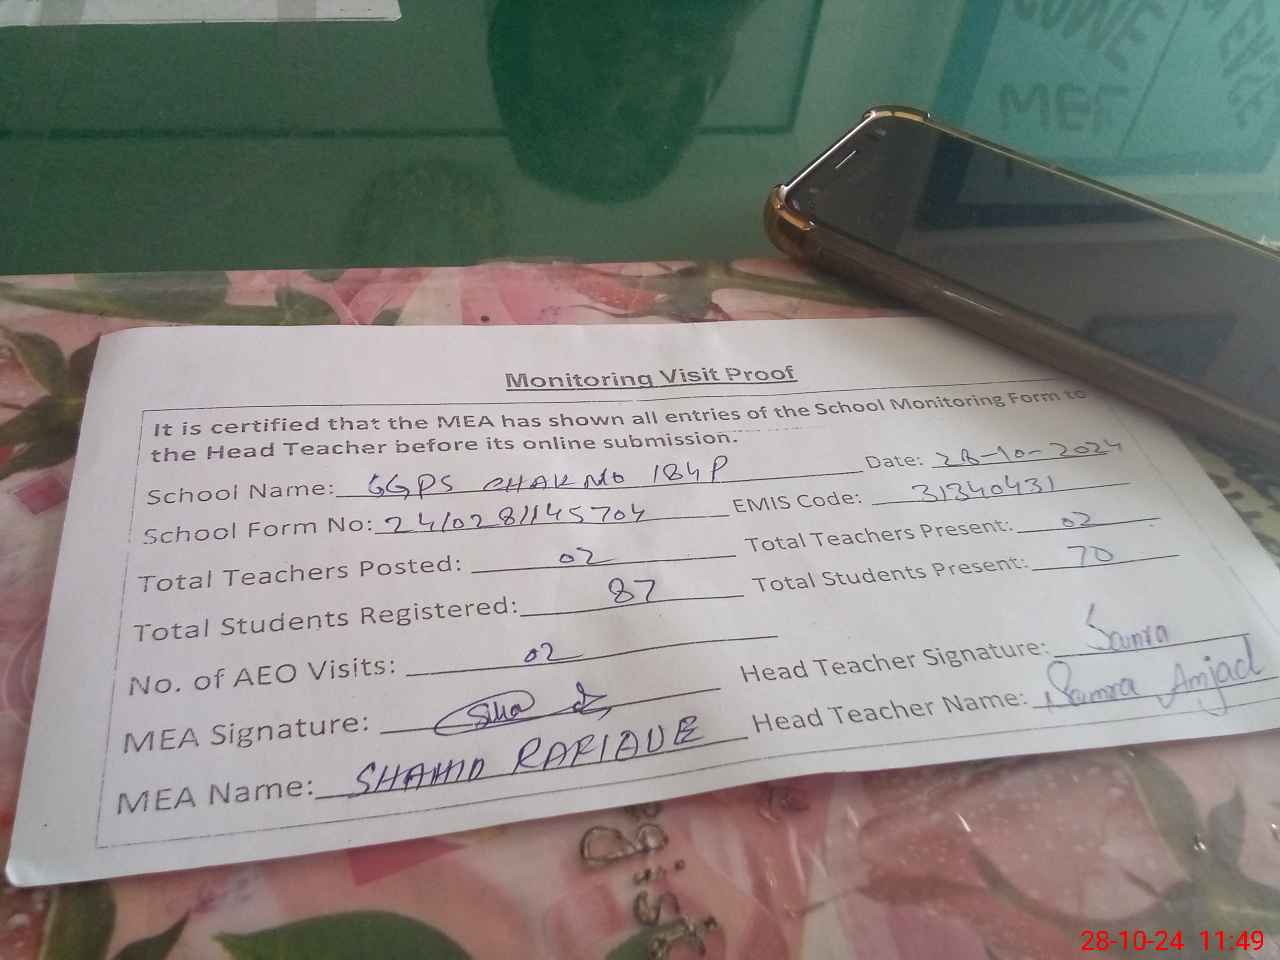 Monitoring Visit Proof
It is certified that the MEA has shown all entries of the School Monitoring Form to
the Head Teacher before its online submission.
School Name: GGPS CHAK NO 184P Date: 28-10-2024
School Form No: 2410281145704 EMIS Code: 31340431
Total Teachers Posted: 02 Total Teachers Present: 02
Total Students Registered: 87 Total Students Present: 70
No. of AEO Visits: 02
MEA Signature: Head Teacher Signature: Samra
MEA Name: SHAHID RAFIQUE Head Teacher Name: Samra Amjad
28-10-24 11:49